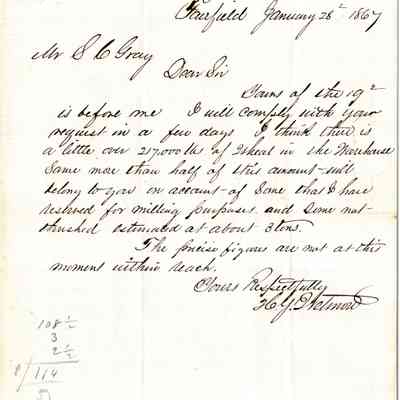 Fairfield January 28" 1867
Mr S C Gray
Dear Sir
Yours of the 19"
is before me I will comply with your
request in a few days I think there is
a little over 217,000 lbs of Wheat in the Warehouse
Some more than half of this amount will
belong to you on account of Some that I have
reserved for milling purposes. and Some not
thrashed estimated at about 3 tons.
The precise figures are not at this
moment within reach.
Yours Respectfully
H. J.
108 ½
3
2 ½
114